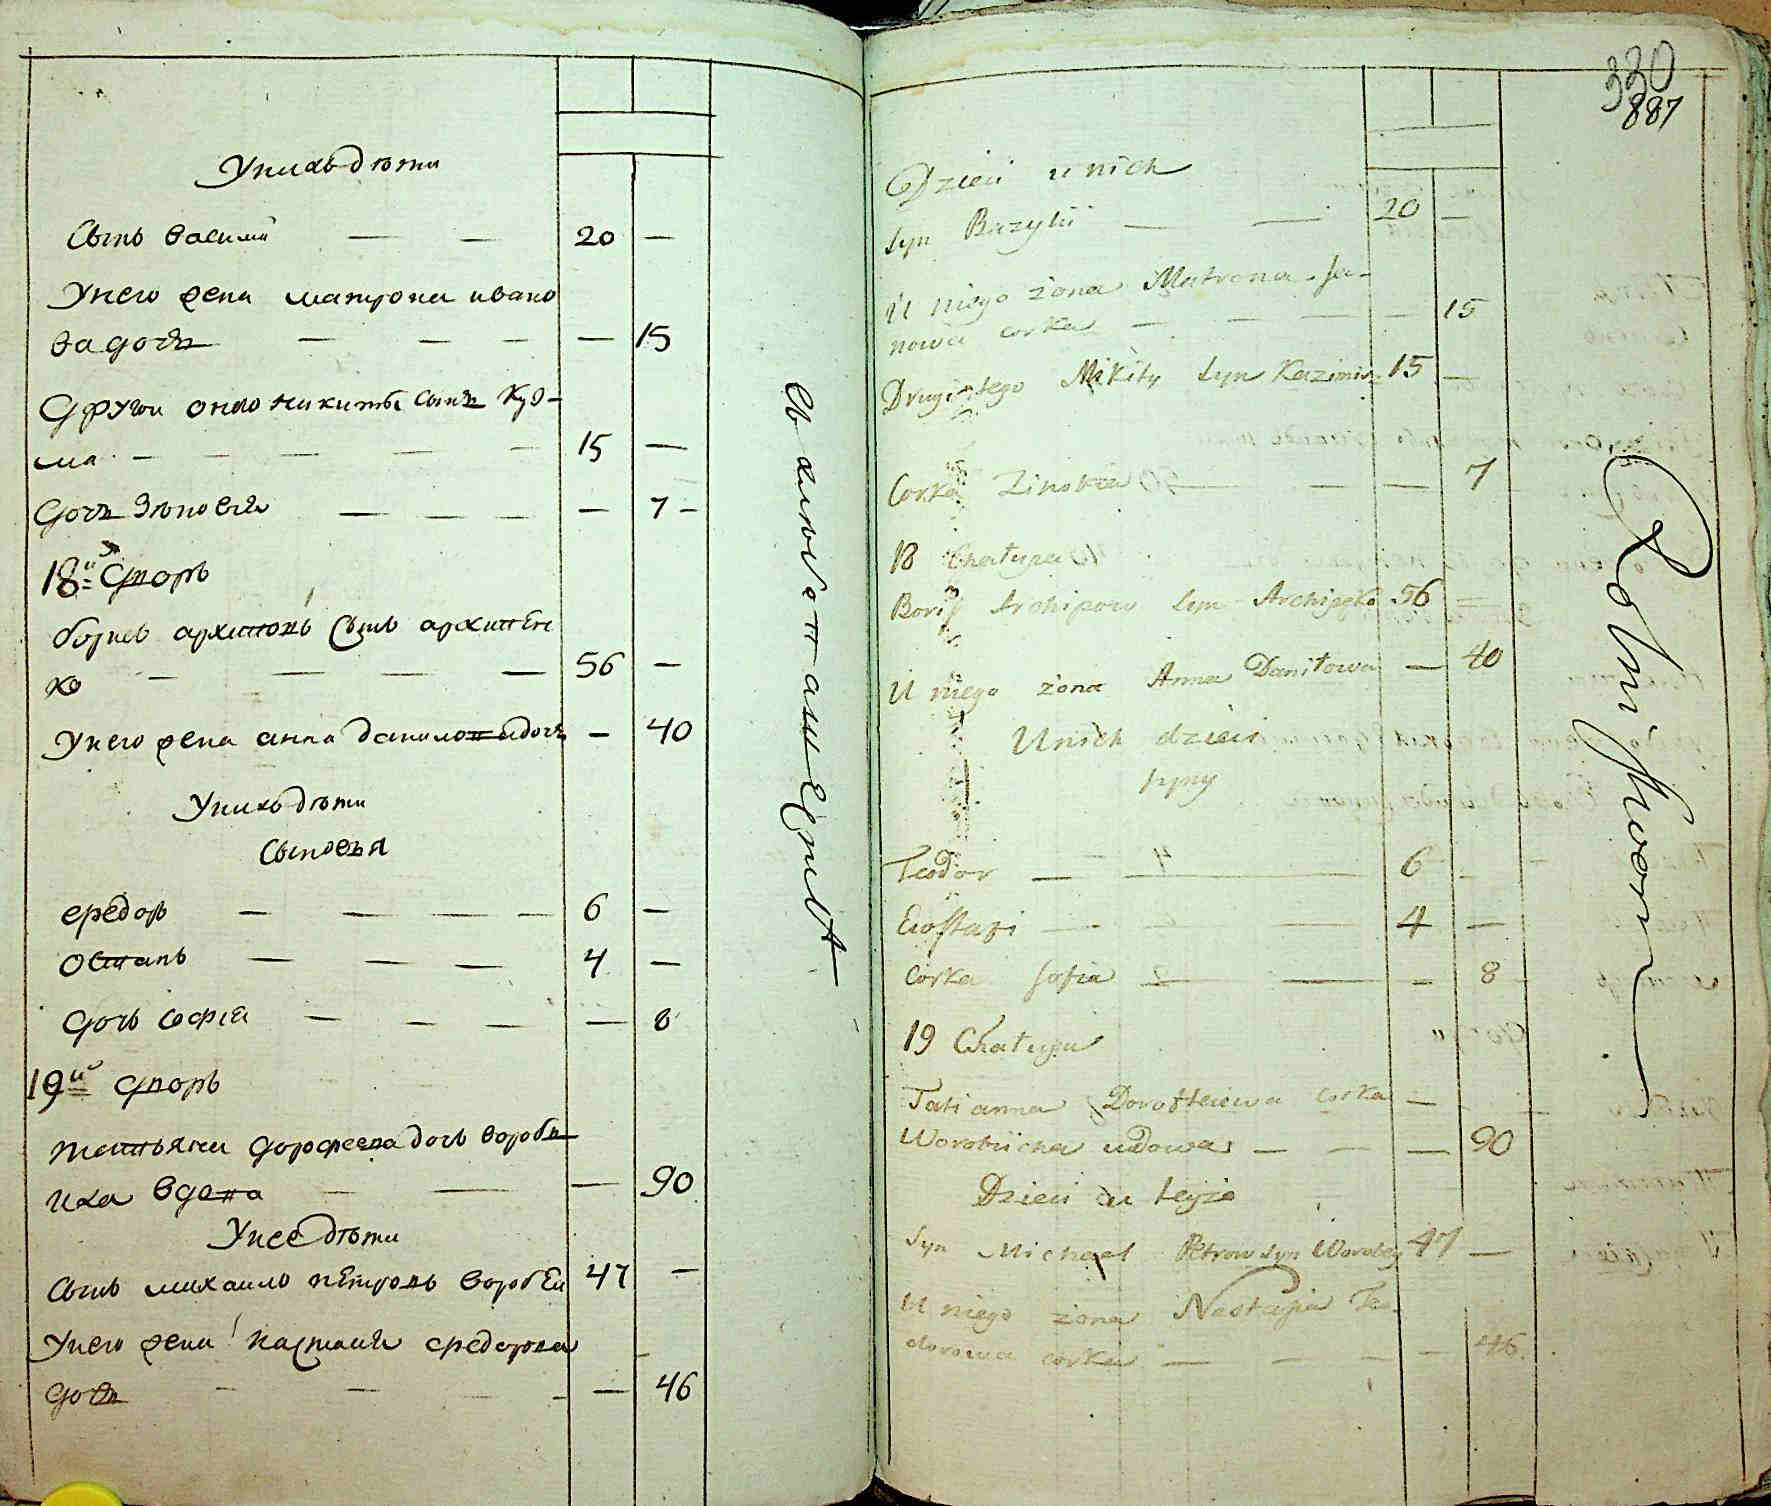 У нихъ дѣти
Сынъ Василий — — 20 —
У него жена Матрона Ивано
ва дочь — — — — 15
Другой оного Никиты сынъ Куз-
ма — — — — — 15 —
Дочь Зѣновия — — — — 7 -
18й Дворъ
Борисъ Архиповъ сынъ Архипен
ко — — — — 56 —
У него жена Анна Данилова дочь — 40
У нихъ дѣти
Сыновья
Федоръ — — — — 6 —
Остапъ — — — 4 —
Дочь София — — — — 8
19й Дворъ
Татьяна Дорофеева дочь Вороби
иха вдова — — — 90
У нее дѣти
Сынъ Михайло Петровъ Воробей 47 —
У него жена Настасия Федорова
дочь — — — — 46
330
887
Dzieci u nich
Syn Bazylii — — 20 —
U niego żona Matrona Ja-
nowa corka — — — — 15
Drugi tego Mikity Syn Kazimir 15 —
Corka Zinowia — — — 7
18 Chatupa
Borys Archipow Syn Archipęko 56 —
U niego żona Anna Daniłowa — 40
U nich dzieci
syny
Teodor — — 6 —
Eustafi — — — 4 —
Corka Sofia — — — 8
19 Chatupa
Tatianna Dorofteiowa Corka —
Worobiicha udowa — — — 90
Dzieci u teyże
Syn Michael Petrow Syn Worobey 47 —
U niego żona Nastazia Te-
dorowa corka — — — — 46